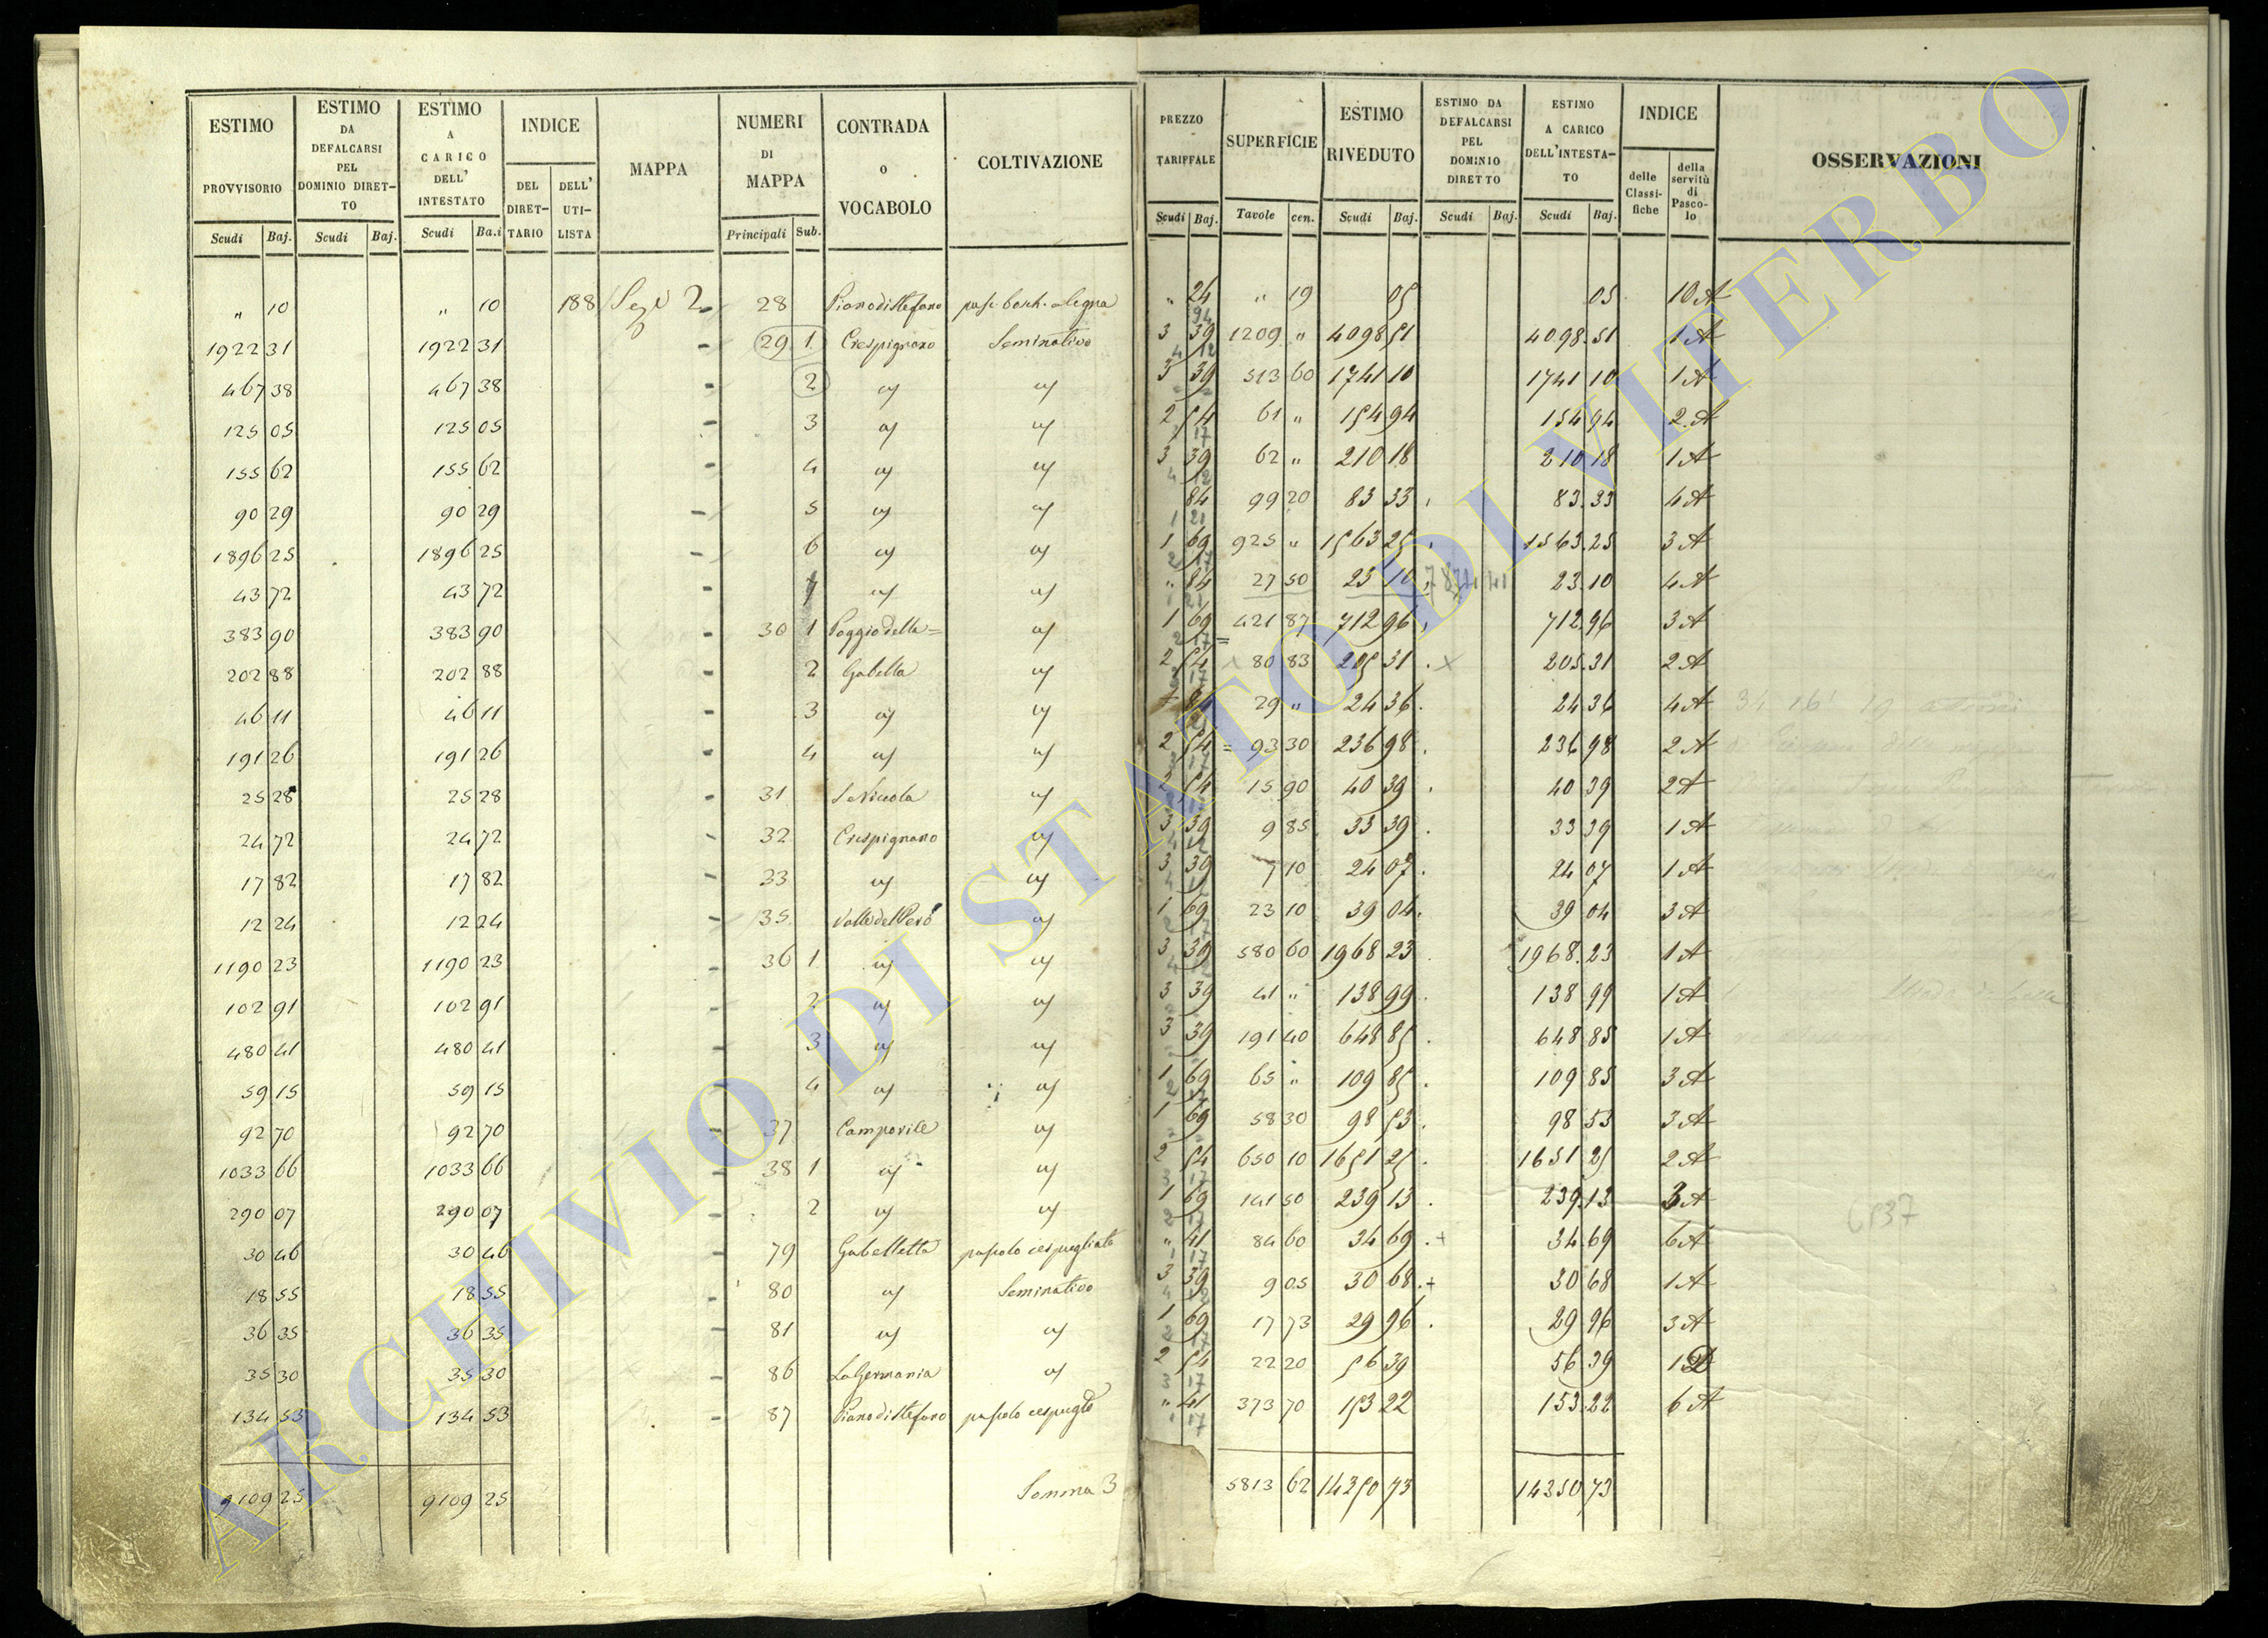 ESTIMO PROVVISORIO | ESTIMO DA DEFALCARSI PEL DOMINIO DIRETTO | ESTIMO A CARICO DELL' INTESTATO | INDICE | MAPPA | NUMERI DI MAPPA | CONTRADA o VOCABOLO | COLTIVAZIONE | PREZZO TARIFFALE | SUPERFICIE | ESTIMO RIVEDUTO | ESTIMO DA DEFALCARSI PEL DOMINIO DIRETTO | ESTIMO A CARICO DELL'INTESTATO | INDICE | OSSERVAZIONI
DEL DIRETTARIO | DELL' UTILISTA | delle Classifiche | della servitù di Pascolo
Scudi | Baj. | Scudi | Baj. | Scudi | Ba.i | Principali | Sub. | Scudi | Baj. | Tavole | cen. | Scudi | Baj. | Scudi | Baj. | Scudi | Baj.
" 10 | " 10 | 188 | Sez. 2 | 28 | Piano di Stefano | pasc. bosch. a legna | " 24 | " 19 | 05 | 05 | 10 A
1922 31 | 1922 31 | 29 1 | Crespignano | Seminativo | 3 39 | 1209 " | 4098 51 | 4098.51 | 1 A
467 38 | 467 38 | 2 | 3 39 | 513 60 | 1741 10 | 1741 10 | 1 A
125 05 | 125 05 | 3 | 2 54 | 61 " | 154 94 | 154 94 | 2 A
155 62 | 155 62 | 4 | 3 39 | 62 " | 210 18 | 210 18 | 1 A
90 29 | 90 29 | 5 | 84 | 99 20 | 83 33 | 83.33 | 4 A
1896 25 | 1896 25 | 6 | 1 69 | 925 " | 1563 25 | 1563.25 | 3 A
43 72 | 43 72 | 7 | " 84 | 27 50 | 23 10 | 23.10 | 4 A
383 90 | 383 90 | 30 1 | Poggio della= | 1 69 | 421 87 | 712 96 | 712 96 | 3 A
202 88 | 202 88 | 2 | Gabella | 2 54 | 80 83 | 205 31 | 205 31 | 2 A
46 11 | 46 11 | 3 | 84 | 29 " | 24 36 | 24 36 | 4 A
191 26 | 191 26 | 4 | 2 54 | 93 30 | 236 98 | 236 98 | 2 A
25 28 | 25 28 | 31 | S. Nicola | 2 54 | 15 90 | 40 39 | 40 39 | 2 A
24 72 | 24 72 | 32 | Crespignano | 3 39 | 9 85 | 33 39 | 33 39 | 1 A
17 82 | 17 82 | 33 | 3 39 | 7 10 | 24 07 | 24 07 | 1 A
12 24 | 12 24 | 35 | Valle del Pero | 1 69 | 23 10 | 39 04 | 39 04 | 3 A
1190 23 | 1190 23 | 36 1 | 3 39 | 580 60 | 1968 23 | 1968.23 | 1 A
102 91 | 102 91 | 2 | 3 39 | 41 " | 138 99 | 138 99 | 1 A
480 41 | 480 41 | 3 | 3 39 | 191 40 | 648 85 | 648 85 | 1 A
59 15 | 59 15 | 4 | 1 69 | 65 " | 109 85 | 109 85 | 3 A
92 70 | 92 70 | 37 | Camporile | 1 69 | 58 30 | 98 53 | 98 53 | 3 A
1033 66 | 1033 66 | 38 1 | 2 54 | 650 10 | 1651 25 | 1651 25 | 2 A
290 07 | 290 07 | 2 | 1 69 | 141 50 | 239 13 | 239.13 | 3 A
30 46 | 30 46 | 79 | Gabelletta | pascolo cespugliato | " 41 | 84 60 | 34 69 | 34 69 | 6 A
18 55 | 18 55 | 80 | Seminativo | 3 39 | 9 05 | 30 68 | 30 68 | 1 A
36 35 | 36 35 | 81 | 1 69 | 17 73 | 29 96 | 29 96 | 3 A
35 30 | 35 30 | 86 | La Germania | 2 54 | 22 20 | 56 39 | 56 39
134 53 | 134 53 | 87 | Piano di Stefano | pascolo cespugto | " 41 | 373 70 | 153 22 | 153.22 | 6 A
9109 25 | 9109 25 | Somma 3 | 5813 62 | 14350 73 | 14350 73
ARCHIVIO DI STATO DI VITERBO